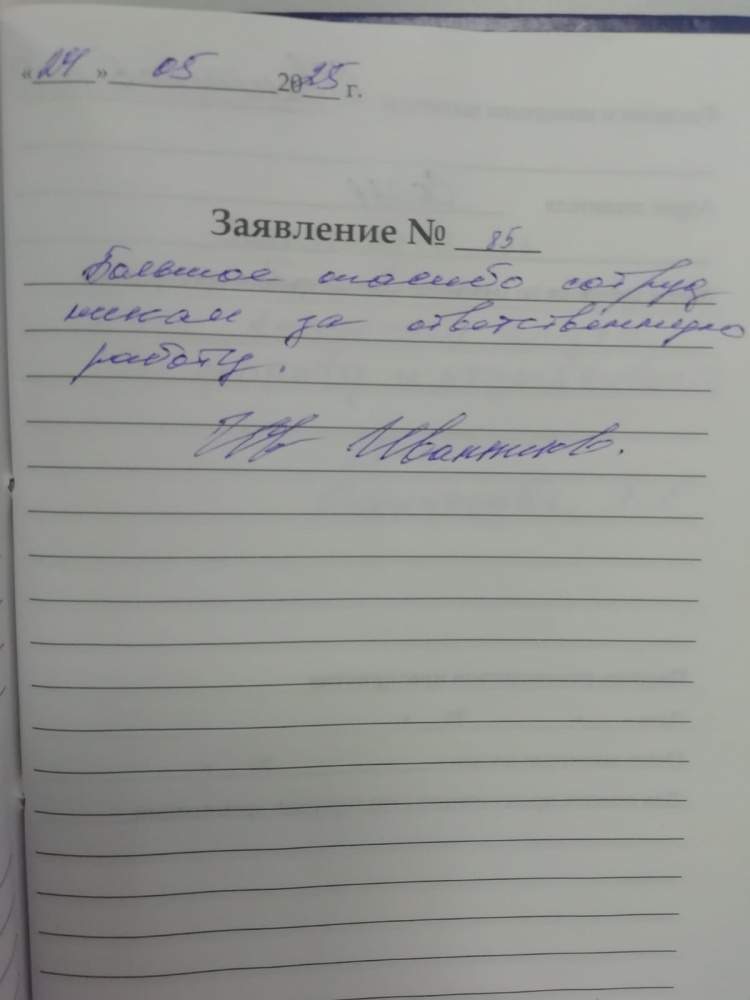 «24» 05 2025 г.
Заявление № 85
Большое спасибо сотруд
никам за ответственную
работу.